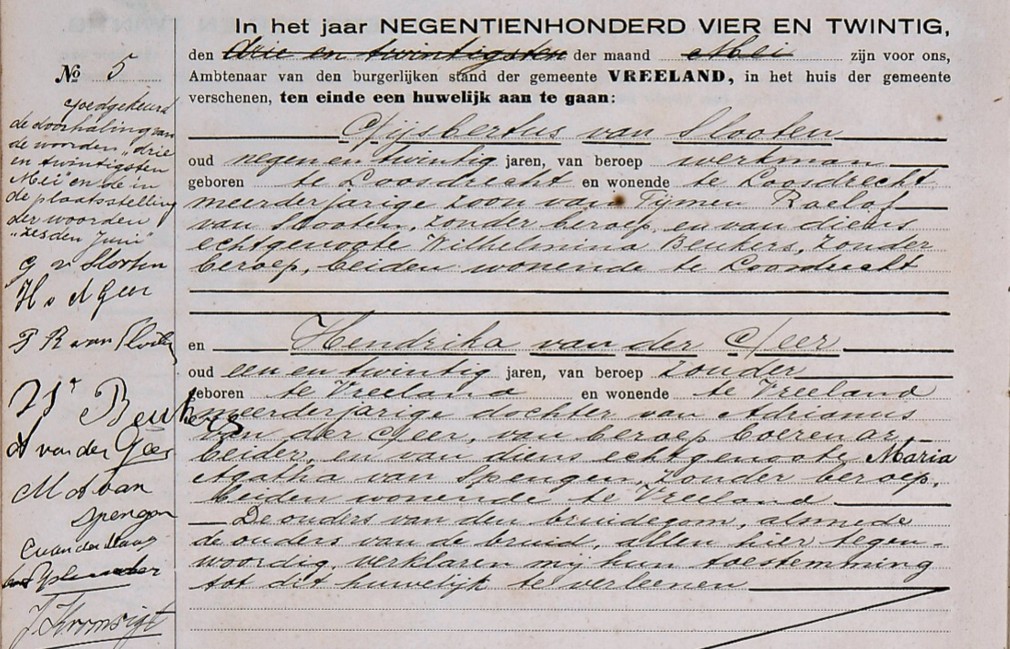 In het jaar NEGENTIENHONDERD VIER EN TWINTIG,
den drie en twintigsten der maand Mei zijn voor ons,
Ambtenaar van den burgerlijken stand der gemeente VREELAND, in het huis der gemeente
verschenen, ten einde een huwelijk aan te gaan:
Gijsbertus van Slooten
oud negen en twintig jaren, van beroep werkman
geboren te Loosdrecht en wonende te Loosdrecht
meerderjarige zoon van Tijmen Roelof
van Slooten, zonder beroep, en van diens
echtgenoote Wilhelmina Beukers, zonder
beroep, beiden wonende te Loosdrecht
en Hendrika van der Geer
oud een en twintig jaren, van beroep zonder
geboren te Vreeland en wonende te Vreeland
meerderjarige dochter van Adrianus
van der Geer, van beroep boerenar-
beider, en van diens echtgenoote Maria
Agatha van Spengen, zonder beroep,
beiden wonende te Vreeland
De ouders van den bruidegom, alsmede
de ouders van de bruid, allen hier tegen-
woordig, verklaren mij hun toestemming
tot dit huwelijk te verleenen
No 5
Goedgekeurd
de doorhaling van
de woorden "drie
en twintigsten
Mei" en de in
de plaatsstelling
der woorden
"zesden Juni"
G v Slooten
H v d Geer
T R van Slooten
W Beukers
A van der Geer
M A van
Spengen
J. Kromsigt